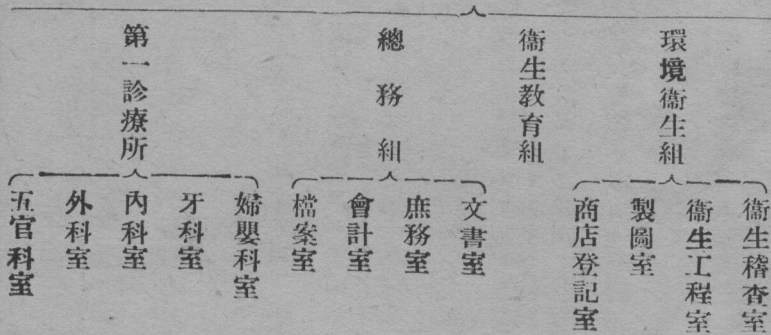 環境衞生組
衞生稽查室
衞生工程室
製圖室
商店登記室
衞生教育組
總務組
文書室
庶務室
會計室
檔案室
第一診療所
婦嬰科室
牙科室
內科室
外科室
五官科室